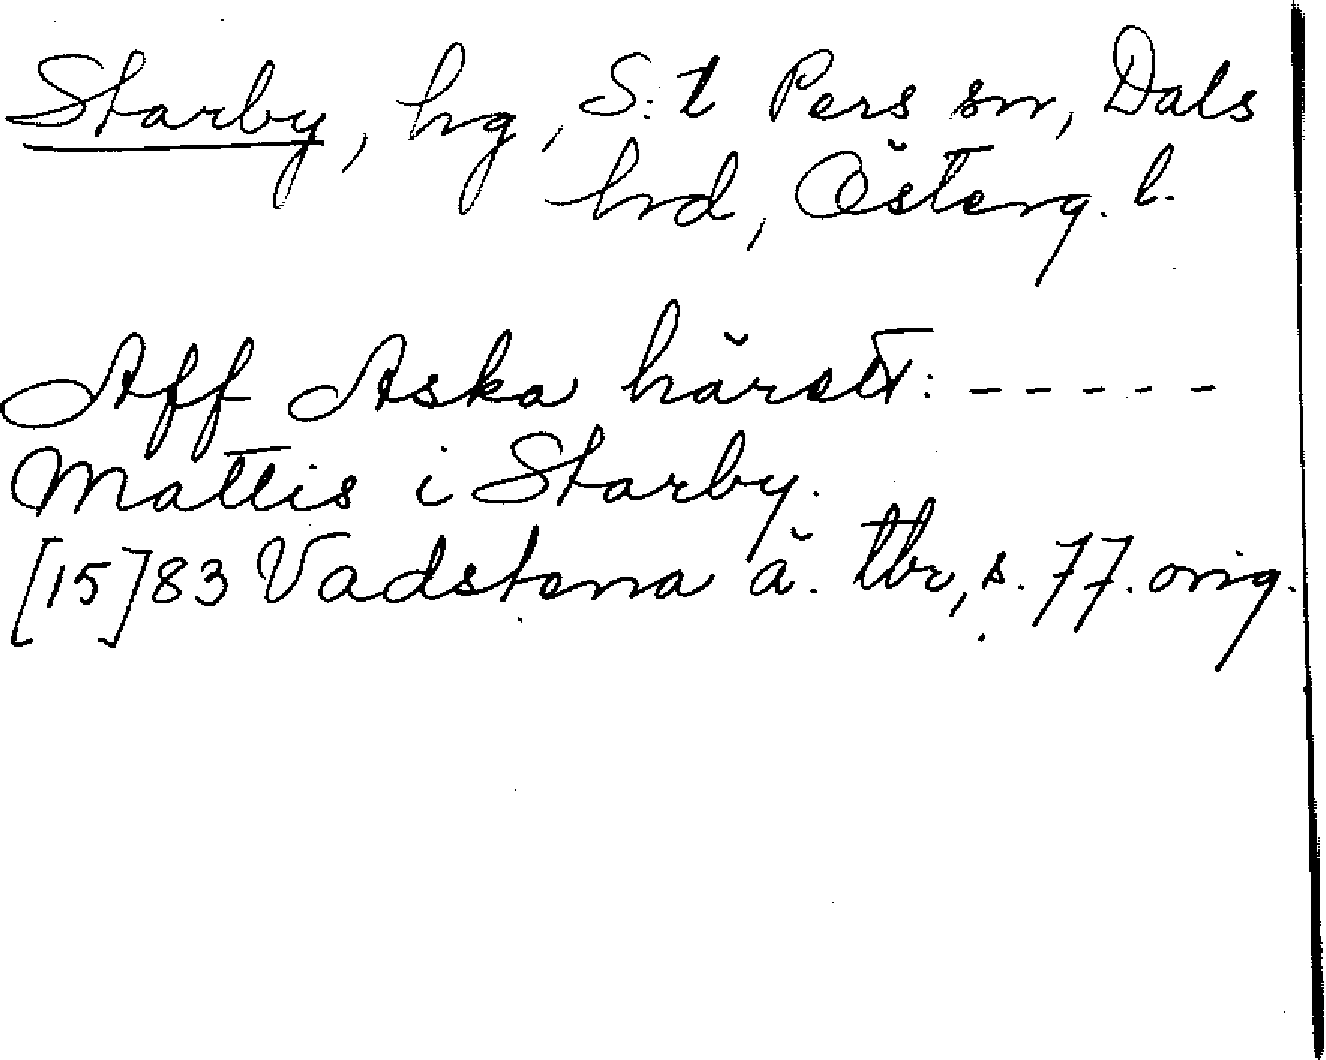 Starby, hg, S:t Pers sn, Dals
hrd, Österg. l.
Aff Aska häratt: - - - - -
Mattis i Starby.
[15]83 Vadstena ä. tbr, s. 77. orig.